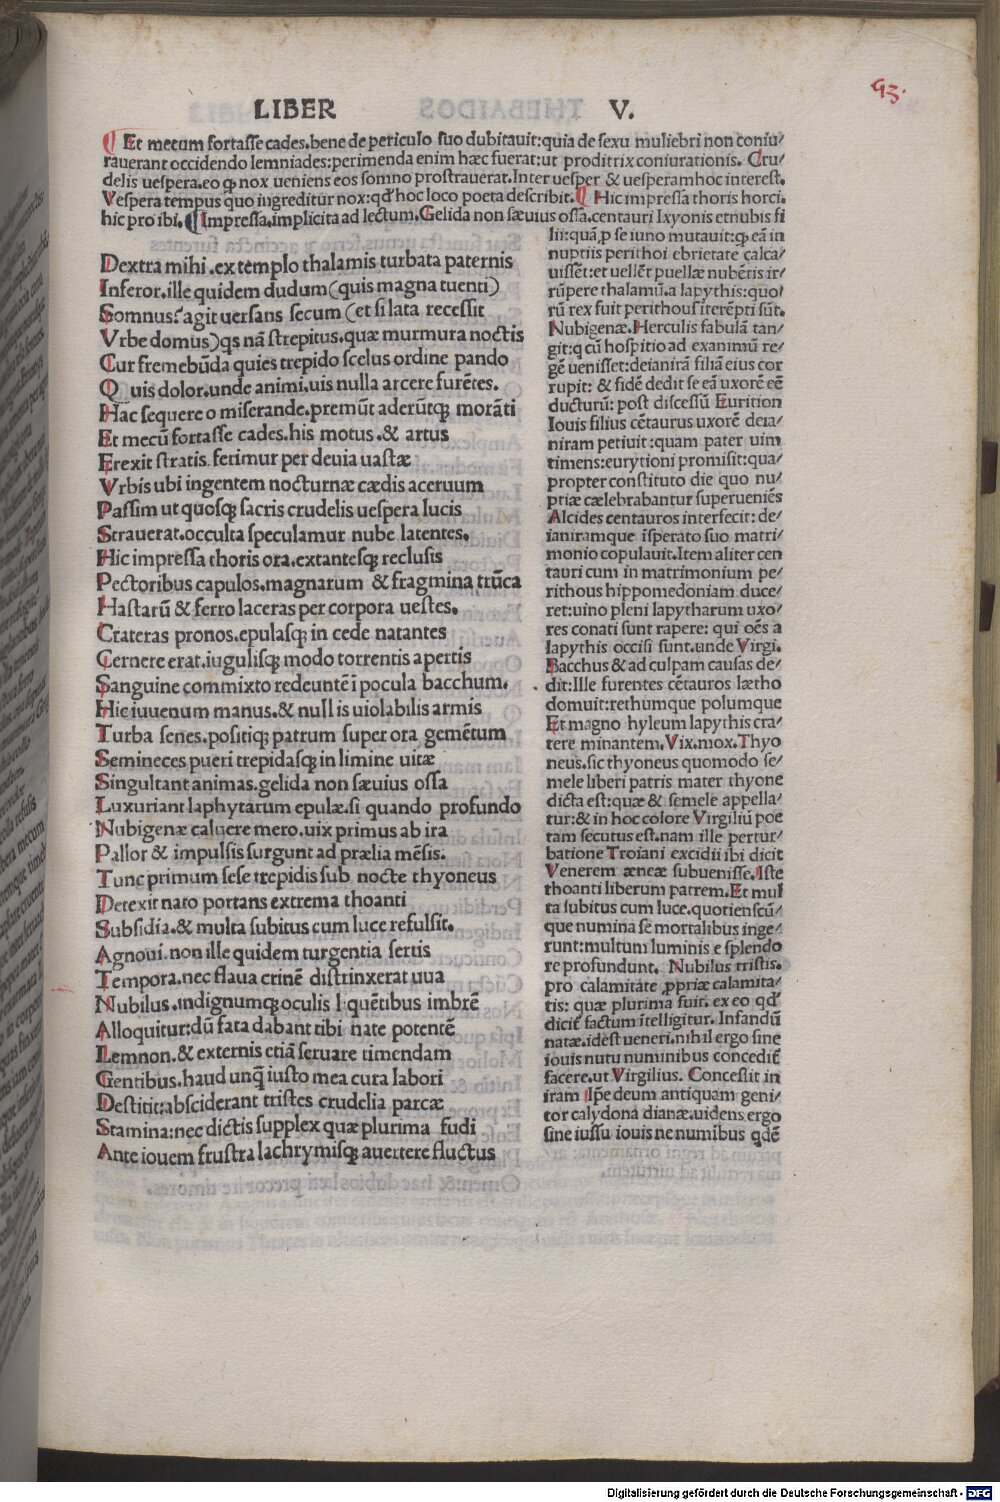 LIBER V.
93.
¶ Et mecum fortasse cades.bene de periculo suo dubitauit:quia de sexu muliebri non coniu/
rauerant occidendo lemniades:perimenda enim hæc fuerat:ut proditrix coniurationis. Cru/
delis uespera.eo ꝙ nox ueniens eos somno prostrauerat.Inter uesper & uesperam hoc interest.
Vespera tempus quo ingreditur nox:qd̕ hoc loco poeta describit.¶ Hic impressa thoris horci.
hic pro ibi.¶ Impressa.implicita ad lectum.Gelida non sæuius ossa.centauri Ixyonis et nubis fi
Dextra mihi.extemplo thalamis turbata paternis
Inferor.ille quidem dudum(quis magna tuenti)
Somnus:agit uersans secum(et si lata recessit
Vrbe domus)qs nā strepitus.quæ murmura noctis
Cur fremebūda quies trepido scelus ordine pando
Quis dolor.unde animi.uis nulla arcere furētes.
Hac sequere o miserande.premūt aderūtqꝫ morāti
Et mecū fortasse cades.his motus.& artus
Erexit stratis.ferimur per deuia uastæ
Vrbis ubi ingentem nocturnæ cædis aceruum
Passim ut quosqꝫ sacris crudelis uespera lucis
Strauerat.occulta speculamur nube latentes.
Hic impressa thoris ora.extantesqꝫ reclusis
Pectoribus capulos.magnarum & fragmina trūca
Hastarū & ferro laceras per corpora uestes.
Crateras pronos.epulasqꝫ in cede natantes
Cernere erat.iugulisqꝫ modo torrentis apertis
Sanguine commixto redeuntē ī pocula bacchum.
Hic iuuenum manus.& nullis uiolabilis armis
Turba senes.positiqꝫ patrum super ora gemētum
Semineces pueri trepidasqꝫ in limine uitæ
Singultant animas.gelida non sæuius ossa
Luxuriant laphytarum epulæ.si quando profundo
Nubigenæ caluere mero.uix primus ab ira
Pallor & impulsis surgunt ad prælia mēsis.
Tunc primum sese trepidis sub nocte thyoneus
Detexit nato portans extrema thoanti
Subsidia.& multa subitus cum luce refulsit.
Agnoui.non ille quidem turgentia sertis
Tempora.nec flaua crinē distrinxerat uua
Nubilus.indignumqꝫ oculis liquētibus imbrē
Alloquitur:dū fata dabant tibi nate potentē
Lemnon.& externis etiā seruare timendam
Gentibus.haud unq̄ iusto mea cura labori
Destitit:absciderant tristes crudelia parcæ
Stamina:nec dictis supplex quæ plurima fudi
Ante iouem frustra lachrymisqꝫ auertere fluctus
lii:quā ꝓ se iuno mutauit:ꝙ eā in
nuptiis perithoi ebrietate calca/
uissēt:et uellēt puellæ nubēris ir/
rūpere thalamū.a lapythis:quo/
rū rex fuit perithous īterēpti sūt.
Nubigenæ.Herculis fabulā tan/
git:q cū hospitio ad exanimū re/
gē uenisset:deianirā filiā eius cor
rupit: & fidē dedit se eā uxorē eē
ducturū: post discessū Eurition
Iouis filius cētaurus uxorē deia/
niram petiuit:quam pater uim
timens:eurytioni promisit:qua/
propter constituto die quo nu/
ptiæ cælebrabantur superueniēs
Alcides centauros interfecit: de/
ianiramque īsperato suo matri/
monio copulauit.Item aliter cen
tauri cum in matrimonium pe/
rithous hippomedoniam duce/
ret:uino pleni lapytharum uxo/
res conati sunt rapere: qui oēs a
lapythis occisi sunt.unde Virgi.
Bacchus & ad culpam causas de/
dit:Ille furentes cētauros lætho
domuit:rethumque polumque
Et magno hyleum lapythis cra/
tere minantem.Vix.mox.Thyo
neus.sic thyoneus quomodo se/
mele liberi patris mater thyone
dicta est:quæ & semele appella/
tur:& in hoc colore Virgiliū poe
tam secutus est.nam ille pertur/
batione Troiani excidii ibi dicit
Venerem æneæ subuenisse.Iste
thoanti liberum patrem.Et mul
ta subitus cum luce.quotienscū/
que numina se mortalibus inge/
runt:multum luminis e splendo
re profundunt. Nubilus tristis.
pro calamitate ꝓpriæ calamita/
tis: quæ plurima fuit. ex eo qd̕
dicit̄ factum ītelligitur. Infandū
natæ.idest ueneri.nihil ergo sine
iouis nutu numinibus concedit̄
facere.ut Virgilius. Concessit in
iram Ipse deum antiquam geni/
tor calydona dianæ.uidens ergo
sine iussu iouis ne numibus qdē
Digitalisierung gefördert durch die Deutsche Forschungsgemeinschaft - DFG